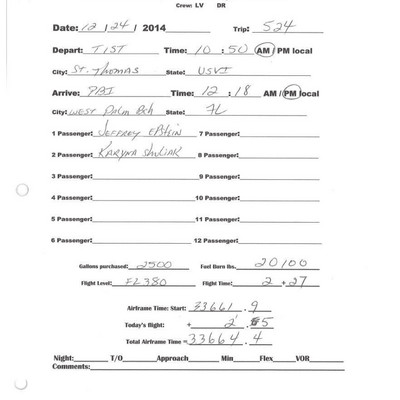 Crew: LV DR
Date: 12 / 24 / 2014 Trip: 524
Depart: TIST Time: 10 : 50 AM / PM local
City: ST. THOMAS State: USVI
Arrive: PBI Time: 12 : 18 AM / PM local
City: WEST Palm Bch State: FL
1 Passenger: JEFFREY EPSTEIN 7 Passenger:
2 Passenger: KARYNA Shuliak 8 Passenger:
3 Passenger: 9 Passenger:
4 Passenger: 10 Passenger:
5 Passenger: 11 Passenger:
6 Passenger: 12 Passenger:
Gallons purchased: 2500 Fuel Burn lbs. 20100
Flight Level: FL380 Flight Time: 2 + 27
Airframe Time: Start: 33661 . 9
Today's flight: + 2 . 5
Total Airframe Time = 33664 . 4
Night: T/O Approach Min Flex VOR
Comments: